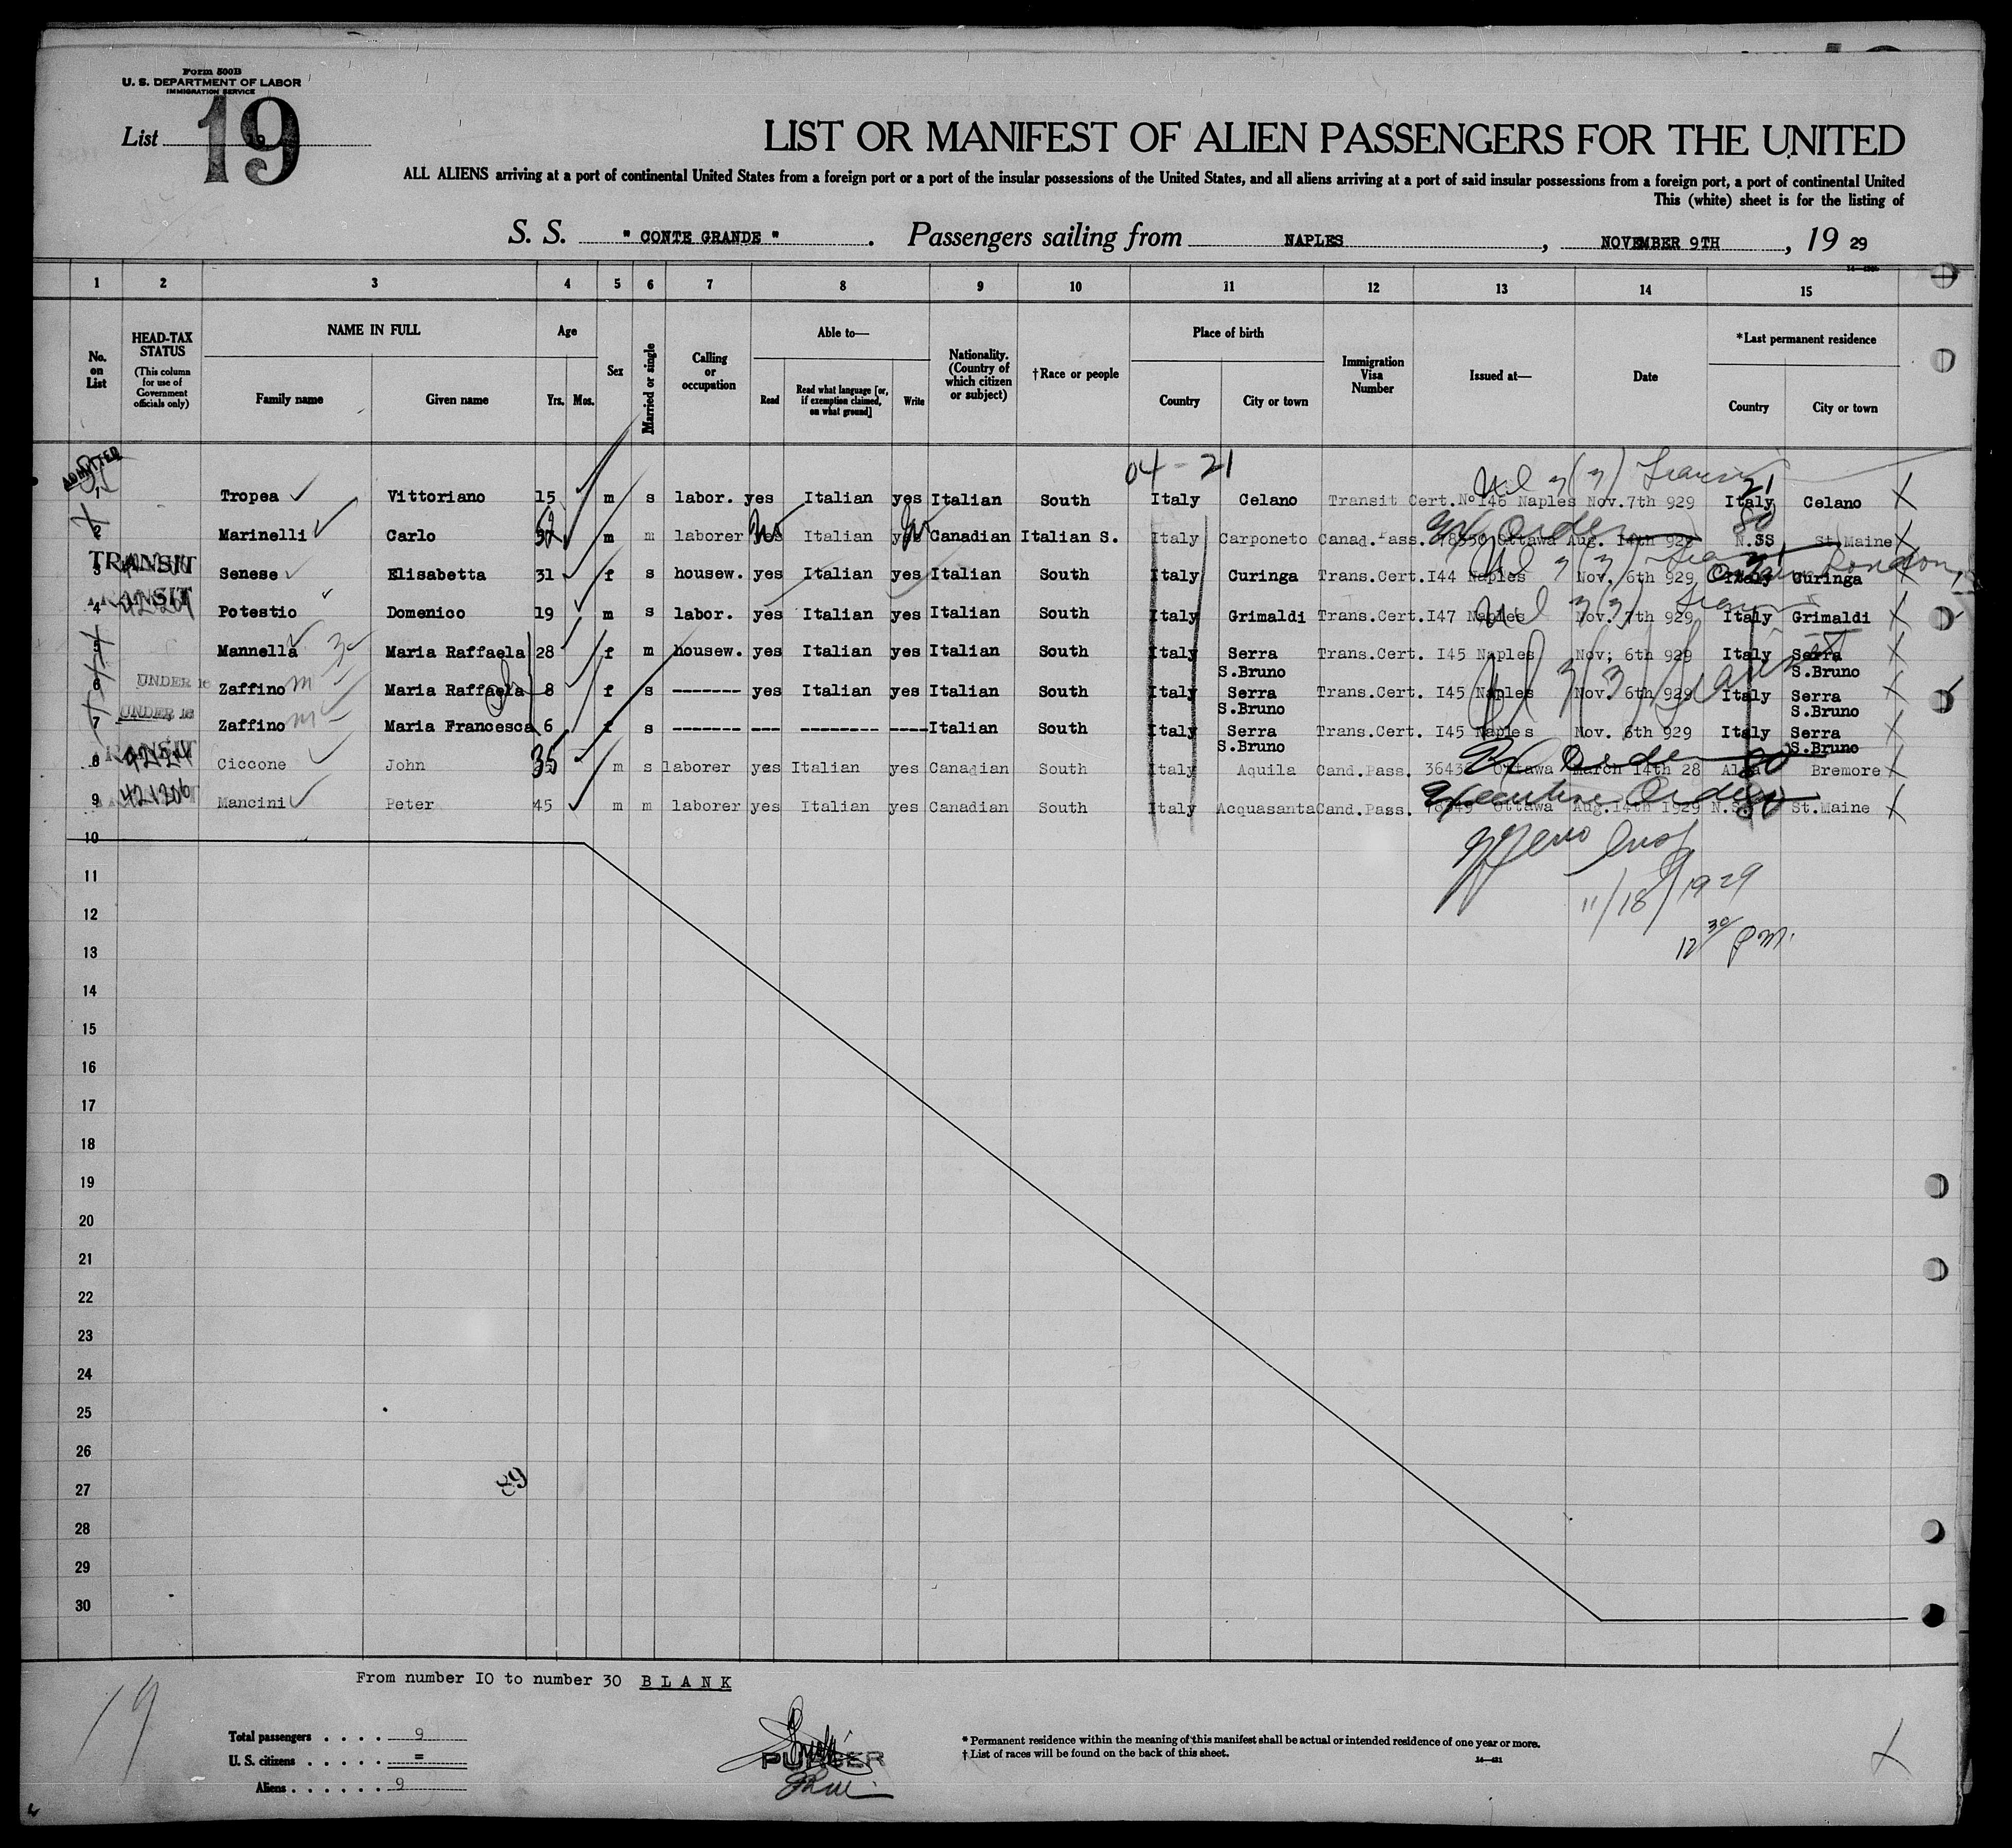 Form 500B
U. S. DEPARTMENT OF LABOR
IMMIGRATION SERVICE
List 19
LIST OR MANIFEST OF ALIEN PASSENGERS FOR THE UNITED
ALL ALIENS arriving at a port of continental United States from a foreign port or a port of the insular possessions of the United States, and all aliens arriving at a port of said insular possessions from a foreign port, a port of continental United
This (white) sheet is for the listing of
S. S. " CONTE GRANDE " . Passengers sailing from NAPLES , NOVEMBER 9TH , 19 29
1 2 3 4 5 6 7 8 9 10 11 12 13 14 15
No. on List
HEAD-TAX STATUS (This column for use of Government officials only)
NAME IN FULL Family name Given name
Age Yrs. Mos.
Sex
Married or single
Calling or occupation
Able to— Read Read what language [or, if exemption claimed, on what ground] Write
Nationality. (Country of which citizen or subject)
†Race or people
Place of birth Country City or town
Immigration Visa Number
Issued at—
Date
*Last permanent residence Country City or town
ADMITTED
04 - 21
1 Tropea Vittoriano 15 m s labor. yes Italian yes Italian South Italy Celano Transit Cert.No 146 Naples Nov.7th 929 Italy Celano
2 Marinelli Carlo m m laborer Italian Canadian Italian S. Italy Carponeto Canad.Pass. 78350 Ottawa Aug. 14th 929 N.SS St.Maine
TRANSIT
3 Senese Elisabetta 31 f s housew. yes Italian yes Italian South Italy Curinga Trans.Cert.I44 Naples Nov. 6th 929 Italy Curinga
London
4 Potestio Domenico 19 m s labor. yes Italian yes Italian South Italy Grimaldi Trans.Cert.I47 Naples Nov. 7th 929 Italy Grimaldi
5 Mannella Maria Raffaela 28 f m housew. yes Italian yes Italian South Italy Serra S.Bruno Trans.Cert. I45 Naples Nov; 6th 929 Italy Serra S.Bruno
6 UNDER 16 Zaffino Maria Raffaela 8 f s ------- yes Italian yes Italian South Italy Serra S.Bruno Trans.Cert. I45 Naples Nov. 6th 929 Italy Serra S.Bruno
7 UNDER 16 Zaffino Maria Francesca 6 f s ------- --- -------- ---- Italian South Italy Serra S.Bruno Trans.Cert. I45 Naples Nov. 6th 929 Italy Serra S.Bruno
8 Ciccone John 35 m s laborer yes Italian yes Canadian South Italy Aquila Cand.Pass. Ottawa March 14th 28 Bremore
Ex Order 80
9 Mancini Peter 45 m m laborer yes Italian yes Canadian South Italy Acquasanta Cand.Pass. 78349 Ottawa Aug.14th 1929 St.Maine
Executive Order 80
10
11 11/18/1929
12
13 12 30 p.m.
14
15
16
17
18
19
20
21
22
23
24
25
26
27
28
29
30
89
From number IO to number 30 B L A N K
19
Total passengers . . . . 9
U. S. citizens . . . . . =
Aliens . . . . . . 9
PURSER
* Permanent residence within the meaning of this manifest shall be actual or intended residence of one year or more.
† List of races will be found on the back of this sheet.
14—421